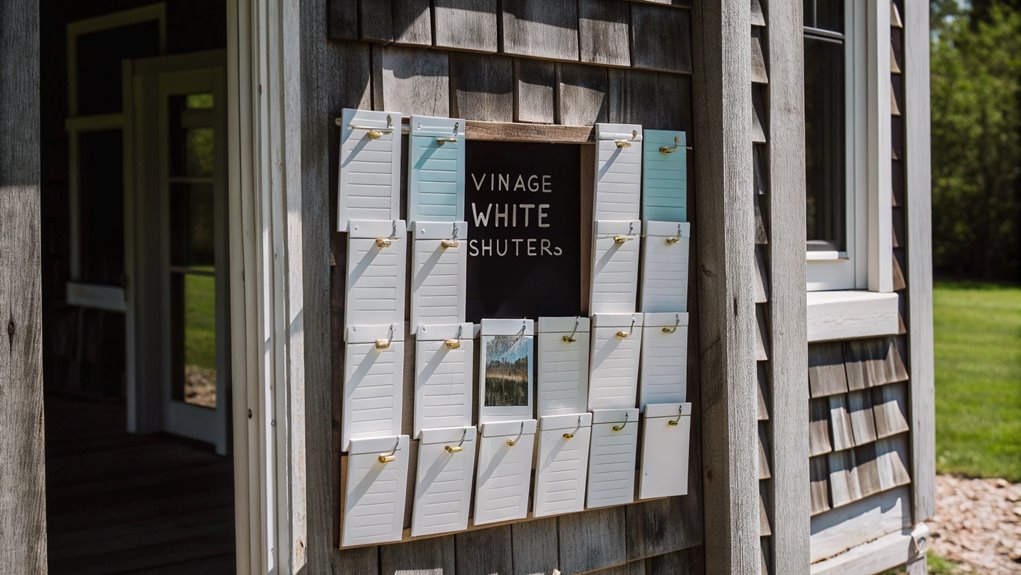 VINAGE
WHITE
SHUTERS